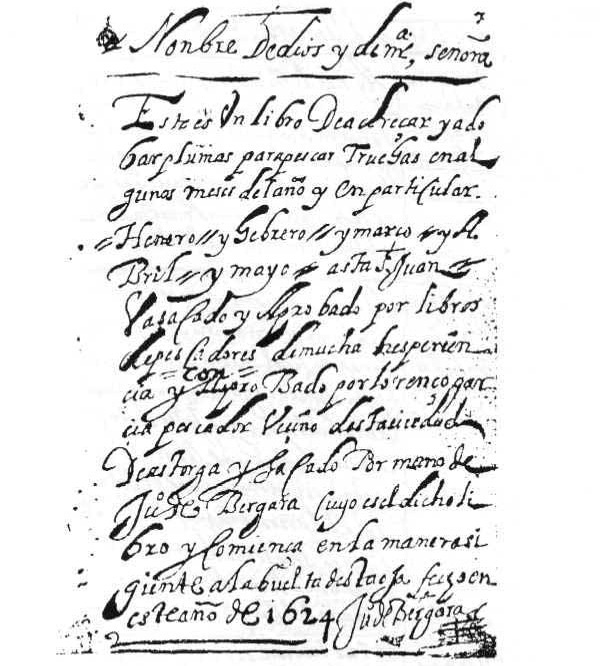 Nonbre De dios y de mᵃ, señora
Este es Un libro De adereçar y ado
bar plumas para pescar Truchas en al
gunos meses del año y En particular.
Henero // y Hebrero // y março // y A
Bril // y mayo // asta S. Juan
Va sacado y Aprobado por libros
de pescadores de mucha hesperien
= con =
cia y Apro Bado por lorenço gar
cia pescador Veçino desta ciedad
De astorga y sacado Por mano de
Juº de Bergara Cuyo es el dicho li
bro y Comiença en la manera si
giente a la buelta desta oja fecho en
este año de 1624 Juº de Bergara